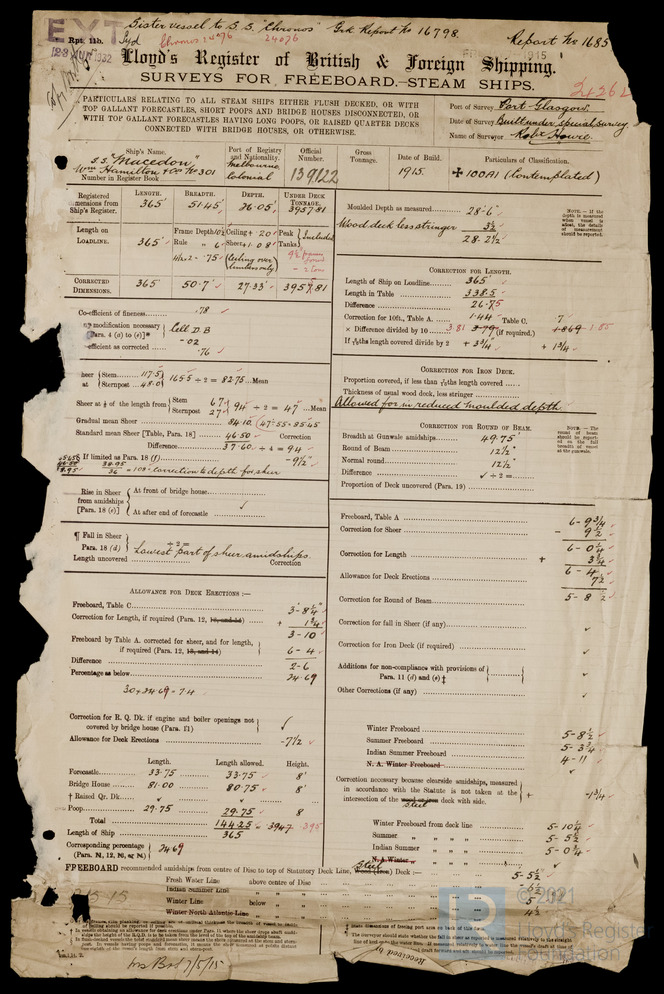 Sister vessel to S.S. "Chronos" Grk Report No 16798.
EXT
Rpt. 11b.
Syd
Report No 1685
Lloyd's Register of British & Foreign Shipping.
SURVEYS FOR FREEBOARD.—STEAM SHIPS.
PARTICULARS RELATING TO ALL STEAM SHIPS EITHER FLUSH DECKED, OR WITH
TOP GALLANT FORECASTLES, SHORT POOPS AND BRIDGE HOUSES DISCONNECTED, OR
WITH TOP GALLANT FORECASTLES HAVING LONG POOPS, OR RAISED QUARTER DECKS
CONNECTED WITH BRIDGE HOUSES, OR OTHERWISE.
Port of Survey Port-Glasgow
Date of Survey Built under special survey
Name of Surveyor Robt Howie.
Ship's Name.
S.S. "Macedon"
Wm Hamilton & Co No 301
Number in Register Book
Port of Registry and Nationality.
Melbourne
Colonial
Official Number.
139122
Gross Tonnage.
Date of Build.
1915.
Particulars of Classification.
✠ 100A1 (Contemplated)
Registered dimensions from Ship's Register.
LENGTH. 365'
BREADTH. 51.45'
DEPTH. 26.05'
UNDER DECK TONNAGE. 3957.81
Length on LOADLINE. 365'
Frame Depth
Rule
Ceiling + .20
Sheer + 1.08
(Ceiling over limbers only)
Peak Tanks } Included
CORRECTED DIMENSIONS. 365 50.7' 27.33' 3957.81
Co-efficient of fineness .78
Any modification necessary [Para. 4 (a) to (e)]* } Cell D.B - .02
Co-efficient as corrected .76
Sheer at { Stem 117.5 Sternpost 48.0 } 165.5 ÷ 2 = 82.75 Mean
Sheer at ⅛ of the length from { Stem 67 Sternpost 27 } 94 ÷ 2 = 47 Mean
Gradual mean Sheer 84.10 (47÷.55=85.45
Standard mean Sheer [Table, Para. 18] 46.50
Correction
Difference 37.60 ÷ 4 = 9.4
If limited as Para. 18 (f) - 9½"
= correction to depth for sheer
Rise in Sheer from amidships [Para. 18 (e)] { At front of bridge house
At after end of forecastle ✓
¶ Fall in Sheer Para. 18 (d) } ÷ 2 =
Lowest part of sheer amidships
Length uncovered
Correction
ALLOWANCE FOR DECK ERECTIONS:—
Freeboard, Table C 3-8¼"
Correction for Length, if required (Para. 12, 13, and 14) + 1¾"
3-10
Freeboard by Table A. corrected for sheer, and for length, if required (Para. 12, 13, and 14) 6-4
Difference 2-6
Percentage as below 24.69
30 × 24.69 = 7.4
Correction for R. Q. Dk. if engine and boiler openings not covered by bridge house (Para. 11) } ✓
Allowance for Deck Erections -7½
Length. Length allowed. Height.
Forecastle 33.75 33.75 8'
Bridge House 81.00 80.75 8'
† Raised Qr. Dk. ✓
Poop 29.75 29.75 8
Total 144.25 = .3947 .395
Length of Ship 365
Corresponding percentage (Para. 11, 12, 13, or 14) } 24.69
Moulded Depth as measured 28-6"
Wood deck less stringer 3½
28-2½
NOTE.—If the depth is measured when vessel is afloat, the details of measurement should be reported.
CORRECTION FOR LENGTH.
Length of Ship on Loadline 365
Length in Table 338.5
Difference 26.75
Correction for 10ft., Table A. 1.44 Table C. .7
× Difference divided by 10 3.81 3.79 (if required.) 1.869 1.85
If 6/10ths length covered divide by 2 + 3¾" + 1¾
CORRECTION FOR IRON DECK.
Proportion covered, if less than 7/10ths length covered
Thickness of usual wood deck, less stringer
Allowed for in reduced moulded depth
CORRECTION FOR ROUND OF BEAM.
Breadth at Gunwale amidships 49.75
Round of Beam 12½"
Normal round 12½
Difference ✓ ÷ 2 =
Proportion of Deck uncovered (Para. 19)
NOTE.—The round of beam should be reported on the full breadth of the vessel at the gunwale.
Freeboard, Table A 6-9¾
Correction for Sheer - 9½
6-0¼
Correction for Length + 3¾
6-4
Allowance for Deck Erections 7½
5-8½
Correction for Round of Beam
Correction for fall in Sheer (if any)
Correction for Iron Deck (if required)
Additions for non-compliance with provisions of Para. 11 (d) and (e) ‡
Other Corrections (if any)
Winter Freeboard 5-8½
Summer Freeboard 5-3¾
Indian Summer Freeboard 4-11
N. A. Winter Freeboard
Correction necessary because clearside amidships, measured in accordance with the Statute is not taken at the intersection of the wood or iron Steel deck with side. + -1¾
Winter Freeboard from deck line 5-10¼
Summer „ „ „ 5-5½
Indian Summer „ „ 5-0¾
N. A. Winter „ „ „
FREEBOARD recommended amidships from centre of Disc to top of Statutory Deck Line, Steel Wood (Iron) Deck :— 5-5½
Fresh Water Line above centre of Disc
Indian Summer Line
Winter Line below
Winter North Atlantic Line
© 2021
Lloyd's Register
Foundation